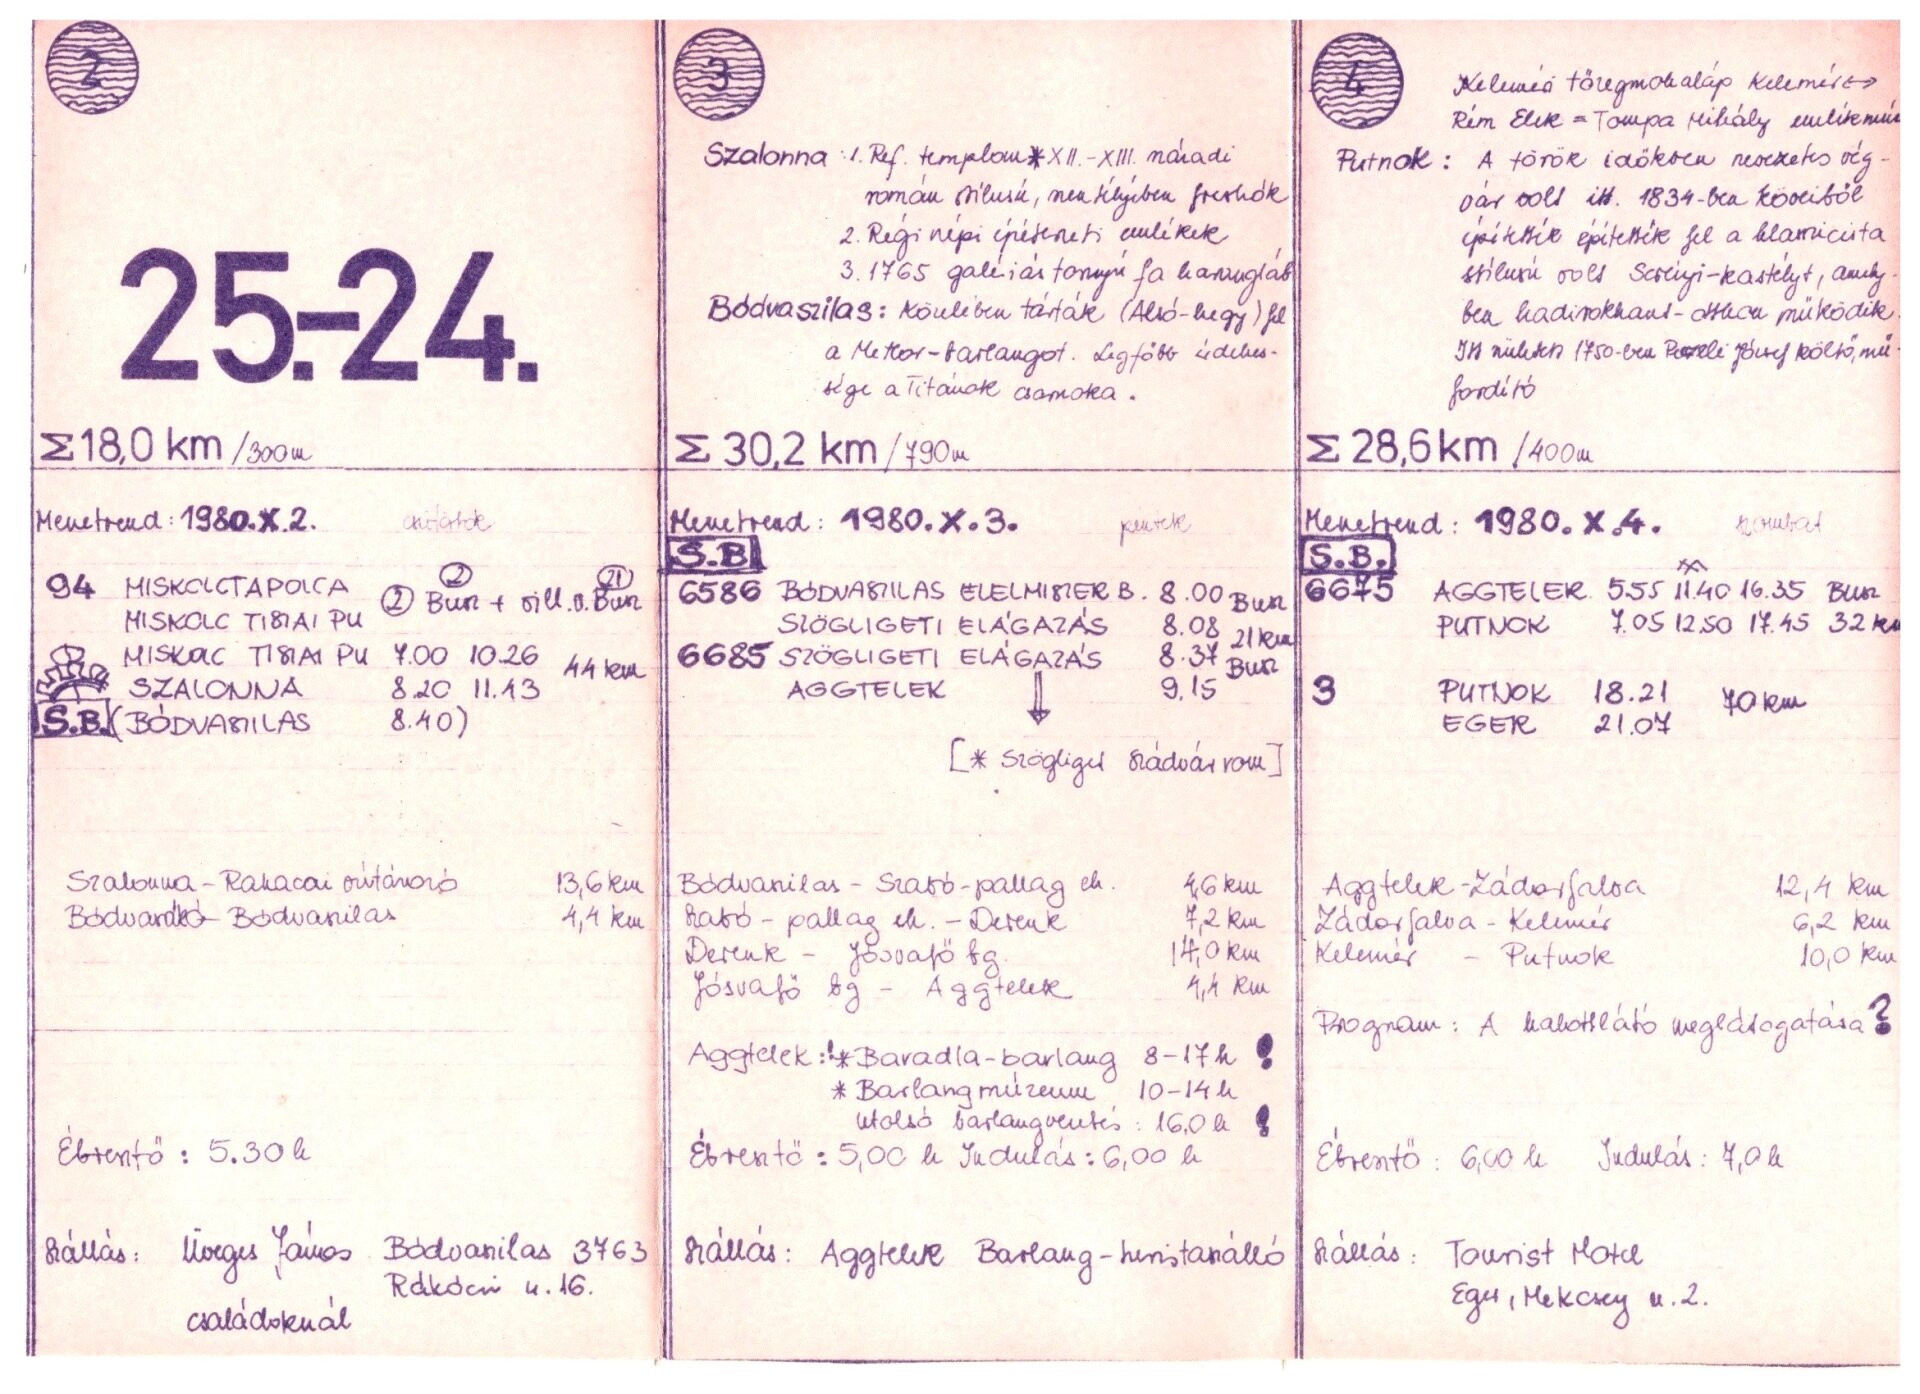 2
25.-24.
Σ 18,0 km /300m
Menetrend: 1980.X.2. csütörtök
94 MISKOLCTAPOLCA
MISKOLC TISZAI PU
② Busz + vill. v. Busz
2
21
MISKOLC TISZAI PU 7.00 10.26 44 km
SZALONNA 8.20 11.43
S.B. (BÓDVASZILAS 8.40)
Szalonna - Rakacai víztározó 13,6 km
Bódvarákó - Bódvaszilas 4,4 km
Ébresztő: 5.30 h
Szállás: Üveges János Bódvaszilas 3763
Rákóczi u. 16.
családoknál
3
Szalonna: 1. Ref. templom * XII.-XIII. századi
román stílusú, szentélyében freskók
2. Régi népi építészeti emlékek
3. 1765 galériás tornyú fa harangláb
Bódvaszilas: Közelében tárták (Alsó-hegy) fel
a Meteor-barlangot. Legfőbb érdekes-
sége a Titánok csarnoka.
Σ 30,2 km /790m
Menetrend: 1980.X.3. péntek
S.B
6586 BÓDVASZILAS ELELMISZER B. 8.00 Busz
SZÖGLIGETI ELÁGAZÁS 8.08 21 km
6685 SZÖGLIGETI ELÁGAZÁS 8.37 Busz
AGGTELEK 9.15
[* Szögliget Szádvár rom]
Bódvaszilas - Szabó-pallag eh. 4,6 km
Szabó-pallag eh. - Derenk 7,2 km
Derenk - Jósvafő bg. 14,0 km
Jósvafő bg - Aggtelek 4,4 km
Aggtelek: * Baradla-barlang 8-17 h !
* Barlangmúzeum 10-14 h
utolsó barlangvezetés: 16,0 h !
Ébresztő: 5,00 h Indulás: 6,00 h
Szállás: Aggtelek Barlang-turistaszálló
4
Keleméri tőzegmohaláp Kelemér ↔
Rém Elek = Tompa Mihály emlékmúz
Putnok: A török időkben nevezetes vég-
vár volt itt. 1834-ben köveiből
építették építették fel a klasszicista
stílusú volt Serényi-kastélyt, amely-
ben hadirokkant-otthon működik.
Itt született 1750-ben Péczeli József költő, mű-
fordító
Σ 28,6 km /400m
Menetrend: 1980.X.4. szombat
S.B.
6675 AGGTELEK 5.55 11.40 16.35 Busz
PUTNOK 7.05 12.50 17.45 32 km
3 PUTNOK 18.21 70 km
EGER 21.07
Aggtelek - Zádorfalva 12,4 km
Zádorfalva - Kelemér 6,2 km
Kelemér - Putnok 10,0 km
Program: A meglátogatása ?
Ébresztő: 6,00 h Indulás: 7,0 h
Szállás: Tourist Motel
Eger, Mekcsey u. 2.